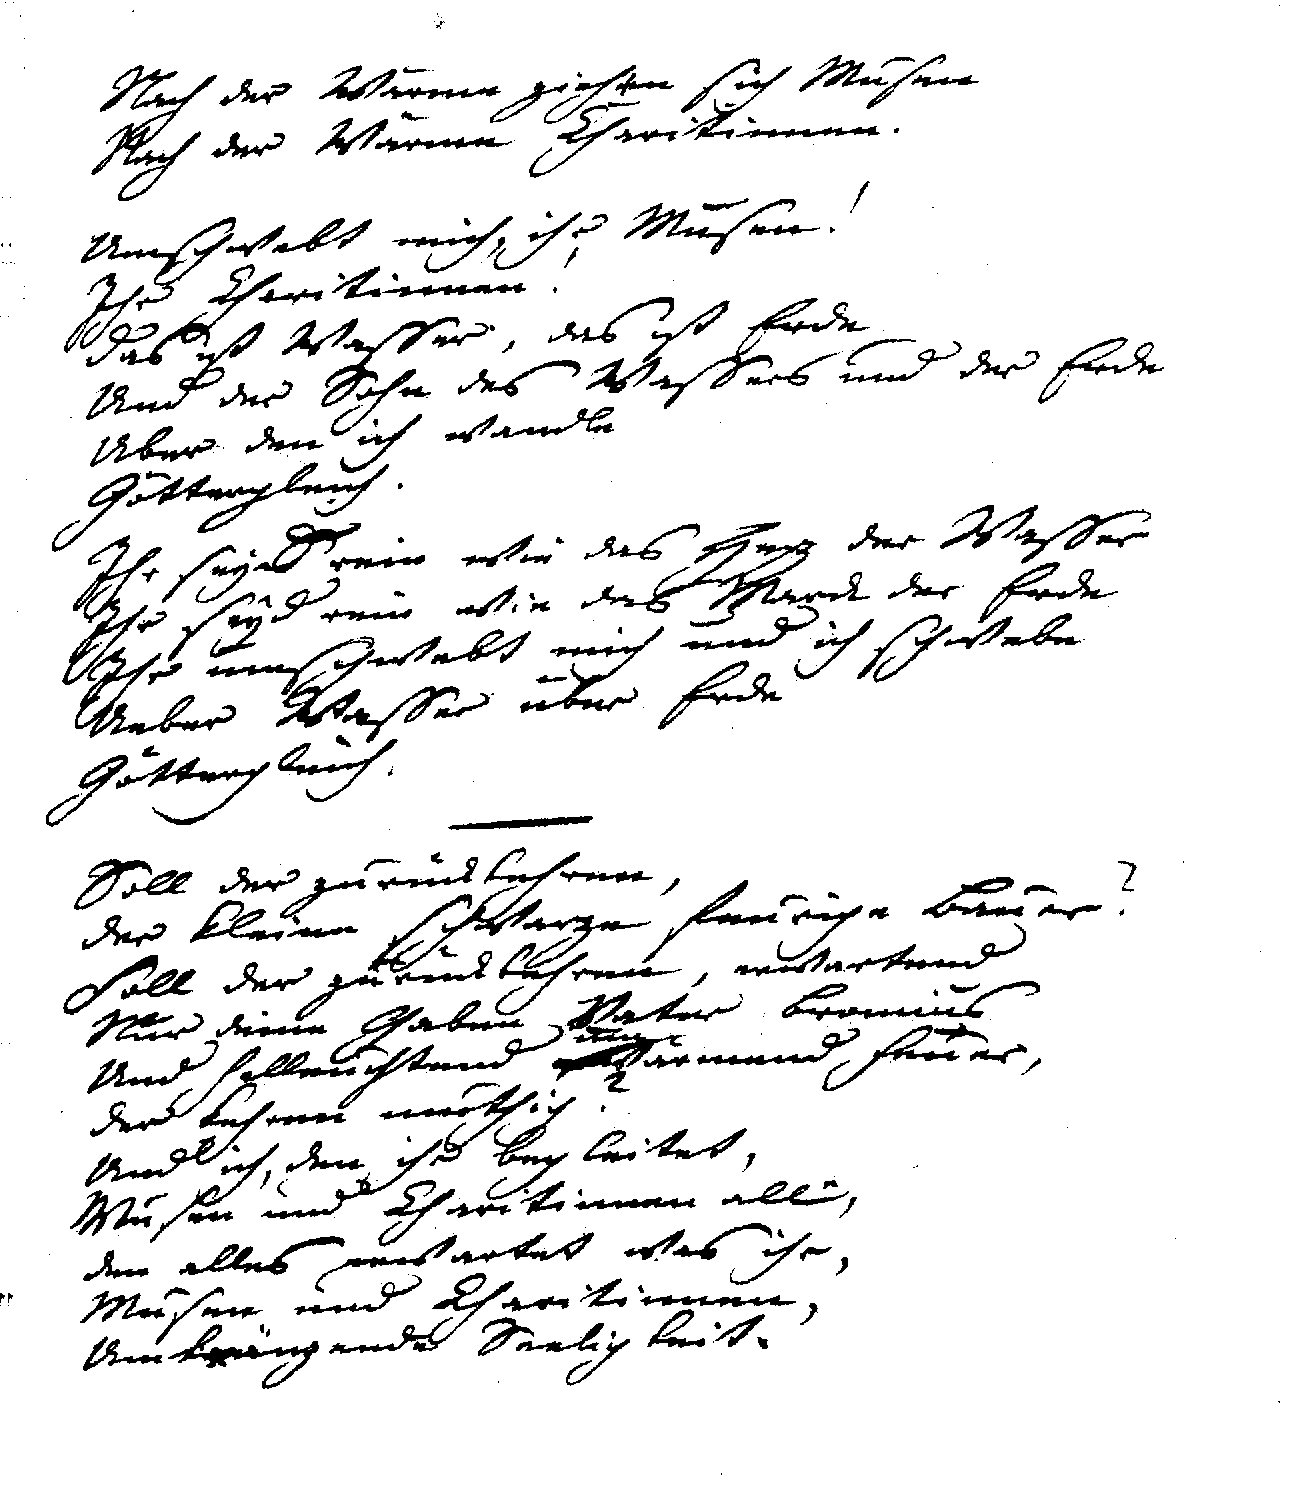 Nach der Wärme ziehen sich Musen
Nach der Wärme Charitinnen.
Umschwebt mich, ihr Musen!
Ihr Charitinnen!
Das ist Wasser, das ist Erde
Und der Sohn des Wassers und der Erde
Uber den ich wandle
Göttergleich.
Ihr seyd rein wie das Herz der Wasser
Ihr seyd rein wie das Marck der Erde
Ihr umschwebt mich und ich schwebe
Ueber Wasser über Erde
Göttergleich.
Soll der zurückkehren,
der kleine schwarze feurige Bauer?
Soll der zurückkehren, erwartend
Nur deine Gaben Vater Bromius
Und hellleuchtend umwärmend Feuer,
der kehren muthig?
Und ich, den ihr begleitet,
Musen und Charitinnen alle,
den alles erwartet was ihr,
Musen und Charitinnen,
Umkränzende Seeligkeit.